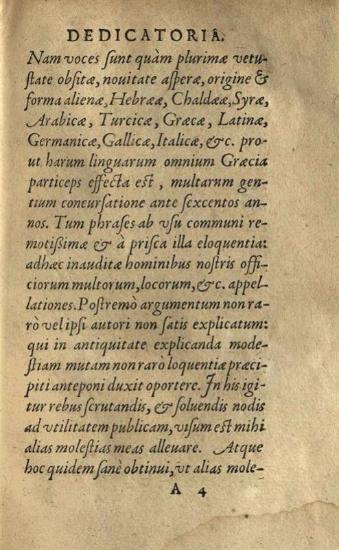 DEDICATORIA.
Nam voces sunt quàm plurimæ vetu-
state obsitæ, nouitate asperæ, origine &
forma alienæ, Hebrææ, Chaldææ, Syræ,
Arabicæ, Turcicæ, Græcæ, Latinæ,
Germanicæ, Gallicæ, Italicæ, &c. pro-
ut harum linguarum omnium Græcia
particeps effecta est, multarum gen-
tium concursatione ante sexcentos an-
nos. Tum phrases ab vsu communi re-
motißimæ & à prisca illa eloquentia:
adhæc inauditæ hominibus nostris offi-
ciorum multorum, locorum, &c. appel-
lationes. Postremò argumentum non ra-
rò vel ipsi autori non satis explicatum:
qui in antiquitate explicanda mode-
stiam mutam non rarò loquentiæ præci-
piti anteponi duxit oportere. In his igi-
tur rebus scrutandis, & soluendis nodis
ad vtilitatem publicam, visum est mihi
alias molestias meas alleuare. Atque
hoc quidem sanè obtinui, vt alias mole-
A 4